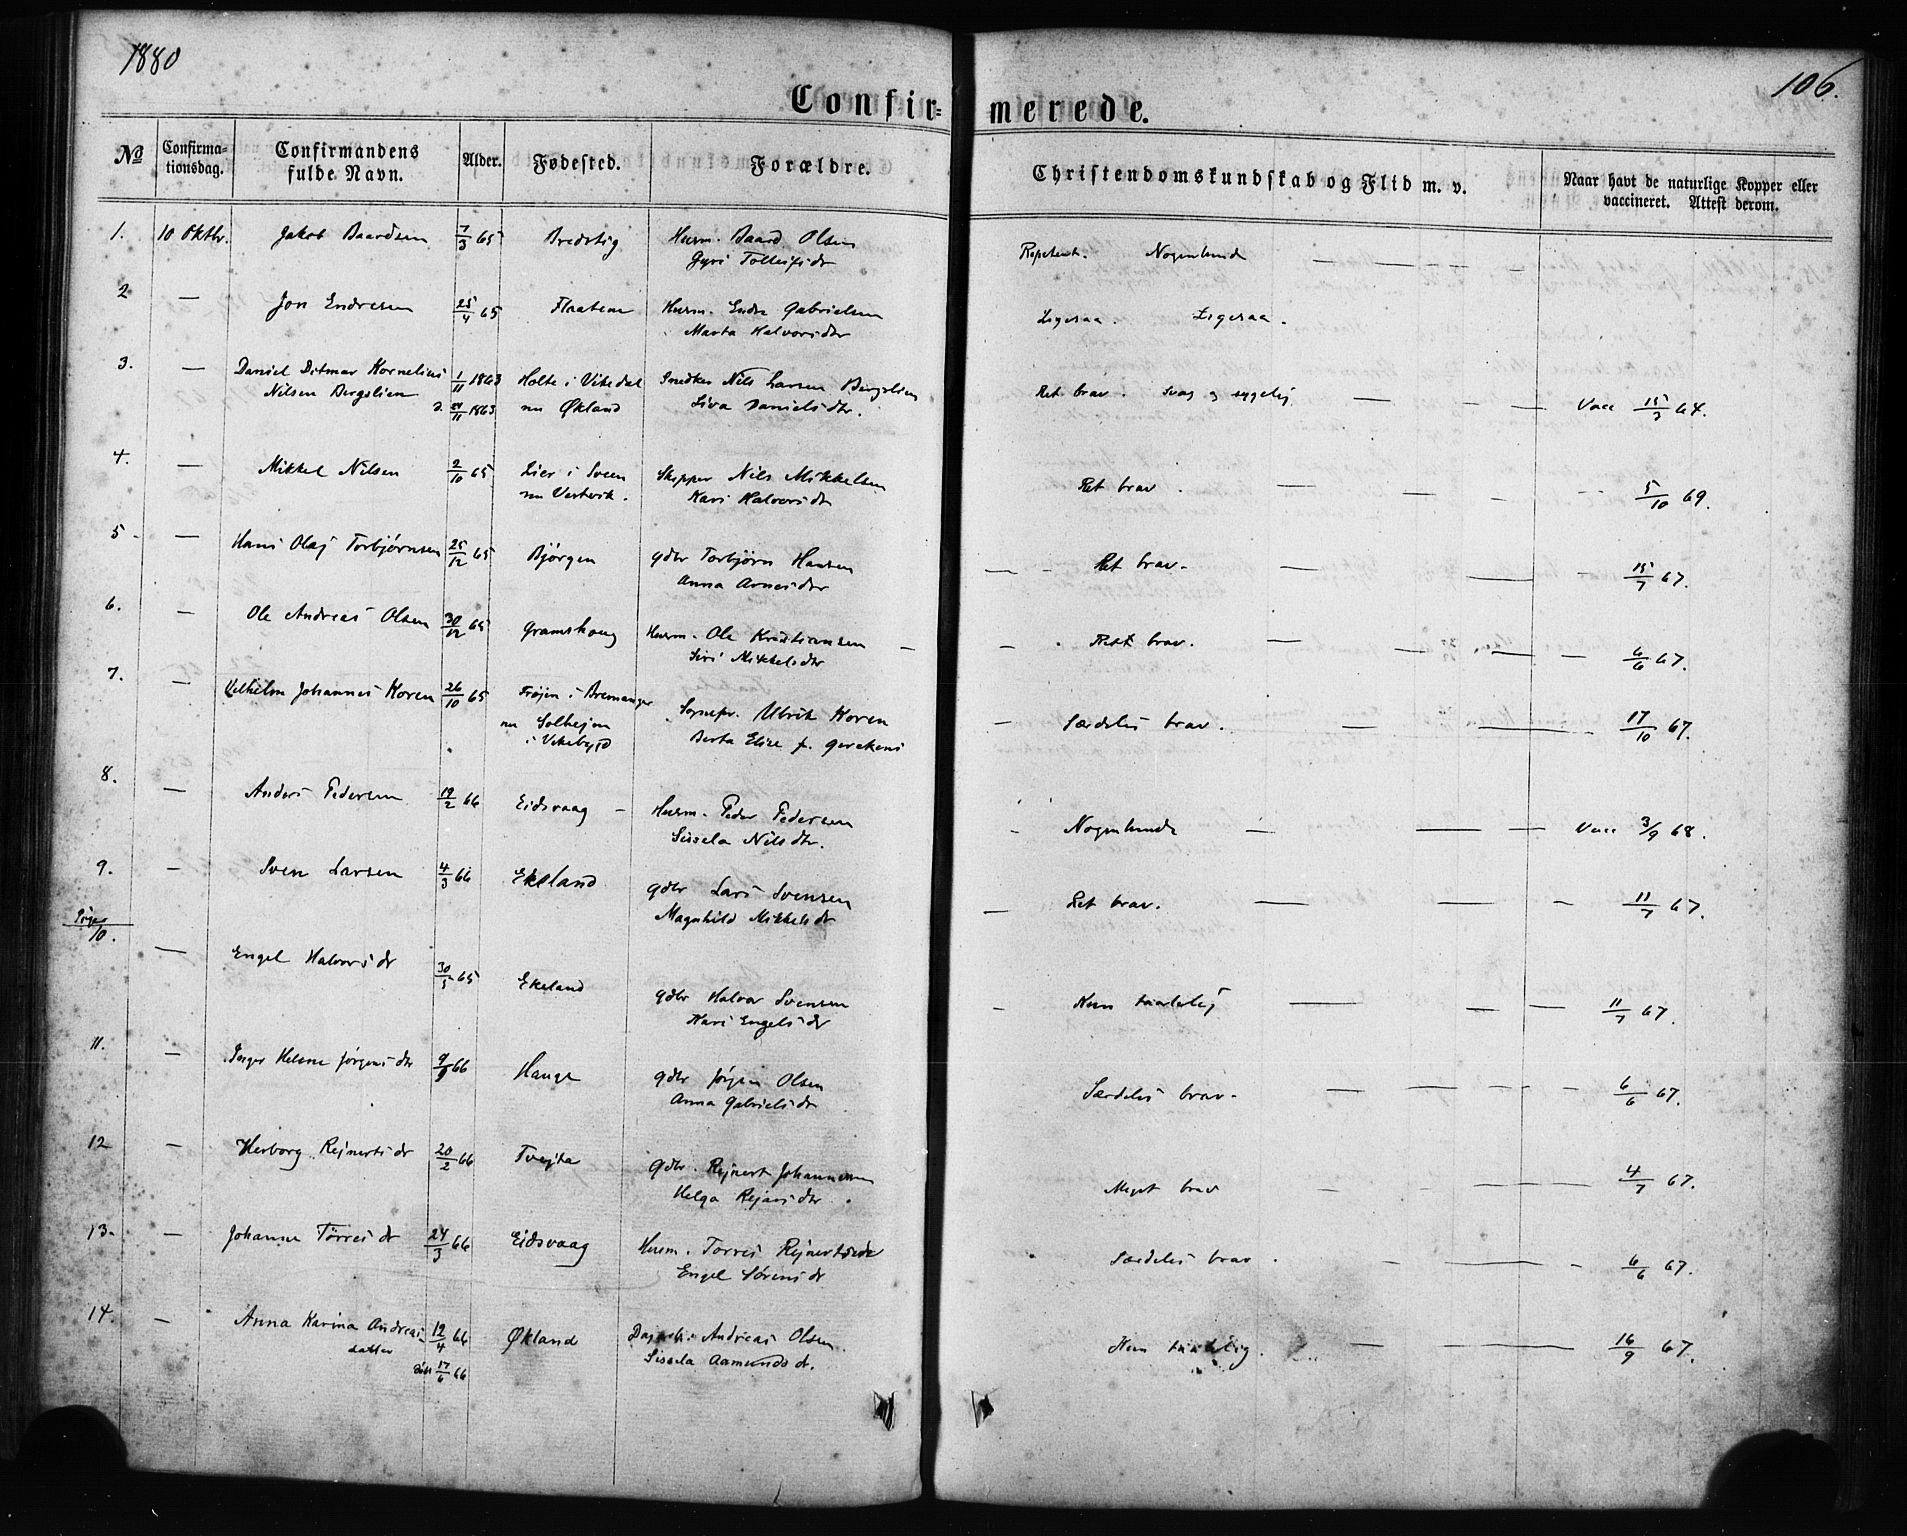 1880
106.
Confir= merede.
No
Confirma-
tionsdag.
Confirmandens
fulde Navn.
Alder.
Fødested.
Forældre.
Christendomskundskab og Flid m. v.
Naar havt de naturlige Kopper eller
vaccineret. Attest derom.
1. 10 Oktbr. Jakob Baardsen 7/3 65 Bredstig Husm. Baard Olsen
Gyri Tolleifsdr
Repetent. Nogenlunde — — — — —
2 — Jon Endresen 25/4 65 Flaatene Husm. Endre Gabrielsen
Marta Halvorsdtr
Ligesaa. Ligesaa.
3. — Daniel Ditmar Kornelius 1/11 1863 Holte i Vikedal Snedker Nils Larsen Bergslien
Nilsen Bergslien D. 24/11 1863 nu Økland Siva Danielsdtr.
Ret brav. svag og sygelig — — — Vacc 15/3 64.
4. — Mikkel Nilsen 2/10 65 Lier i Sveen Skipper Nils Mikkelsen
nu Vestvik. Kari Halvorsdr
Ret brav. — — — 5/10 69.
5 — Hans Olaj Torbjørnsen 25/12 65 Bjørgen gdbr Torbjørn Hansen
Anna Arnesdtr
— Ret brav. — — 15/7 67.
6. — Ole Andreas Olsen 30/12 65 Gramshoug Husm. Ole Kristiansen —
Siri Mikkelsdtr
— Ret brav. — — — — 6/6 67.
7. — Vilhelm Johannes Koren 26/10 65 Frøjen i Bremanger Sognepr. Ulrik Koren
nu Solhejm Berta Elise f. Gerckens
i Vikebygd
— Særdeles brav. — — — 17/10 67.
8. — Anders Pedersen 19/2 66 Eidsvaag — Husm. Peder Pedersen
Sissela Nilsdtr.
— Nogenlunde — — — Vacc 3/9 68.
9. — Sven Larsen 4/3 66 Ekeland gdbr Lars Svensen
Magnhild Mikkelsdr
— Ret brav. — — — 11/7 67.
Piger
10. — Engel Halvorsdr 30/5 65 Ekeland gdbr Halvor Svensen
Kari Engelsdr
— Kun taalelig — — — 11/7 67.
11. — Inger Helene Jørgensdtr 9/9 66 Hauge gdbr Jørgen Olsen
Anna Gabrielsdr
Særdeles brav. — — — — 6/6 67.
12 — Herborg Rejnertsdr 20/2 66 Tvejta gdbr. Rejnert Johannesen
Helga Rejersdtr.
Meget brav — — 4/7 67.
13. — Johanne Tørresdr 24/3 66 Eidsvaag Husm. Tørres Rejnertsen
Engel Sørensdr
Særdeles brav. — — — 6/6 67.
14. — Anna Karina Andreas- 12/4 66 Økland Andreas Olsen
datter døbt 17/6 66 Sissela Aamundsdr.
Kun taalelig. — — 16/9 67.